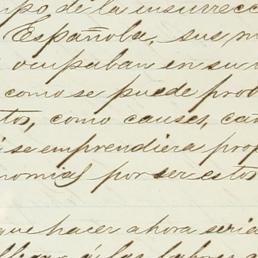 po de la insurrecc
Española, sus m
ocupaban en su
como se puede prob
tos, como causes, ca
i se emprendiera prop
nomias por ser estos
que hacer ahora seria
á las labores